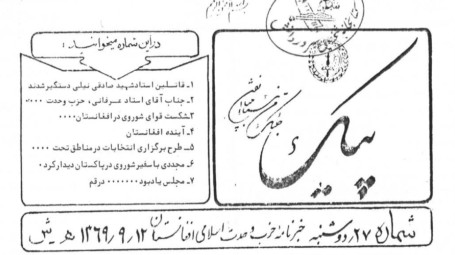 در این شماره میخوانید:
۱ـ قاتلین استاد شهید صادقی نیلی دستگیر شدند
۲ـ جناب آقای استاد عرفانی، حزب وحدت ۰۰۰۰
۳ـ شکست قوای شوروی در افغانستان ۰۰۰۰
۴ـ آینده افغانستان
۵ـ طرح برگزاری انتخابات در مناطق تحت ۰۰۰۰
۶ـ مجددی با سفیر شوروی در پاکستان دیدار کرد۰
۷ـ مجلس یادبود ۰۰۰۰۰۰۰ در قم
پیک
شماره ۲۷ دوشنبه خبرنامه حزب وحدت اسلامی افغانستان ۱۳۶۹٫۹٫۱۲ هـ ش